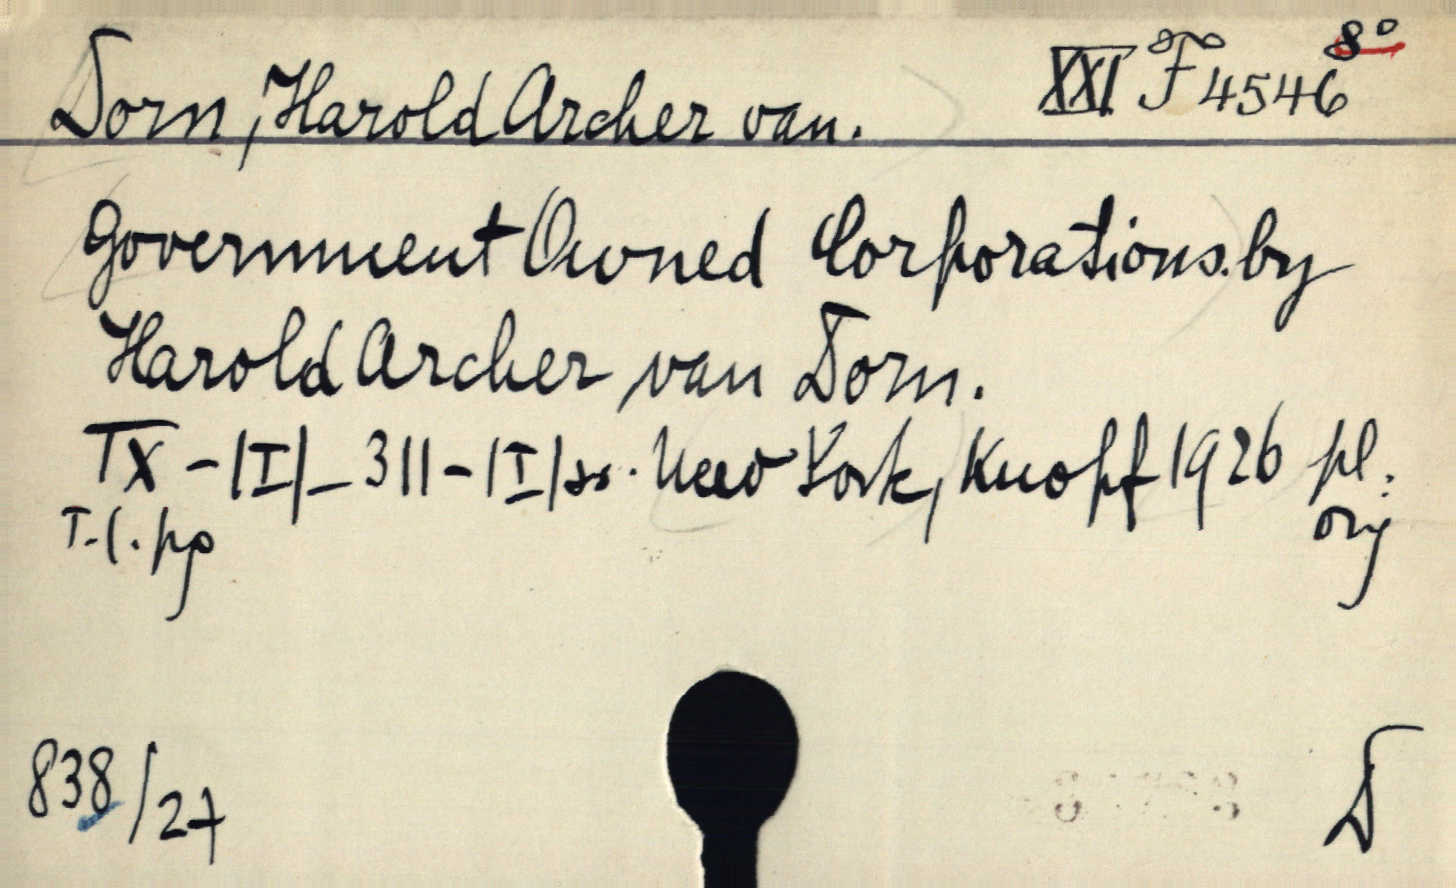 Dorn, Harold Archer van. XXI F 4546 8°
Government Owned Corporations. by
Harold Archer van Dorn.
IX - |I| - 311 - |I| ss. New York, Knopf 1926 pl.
T. l. pp orig
838/27 D